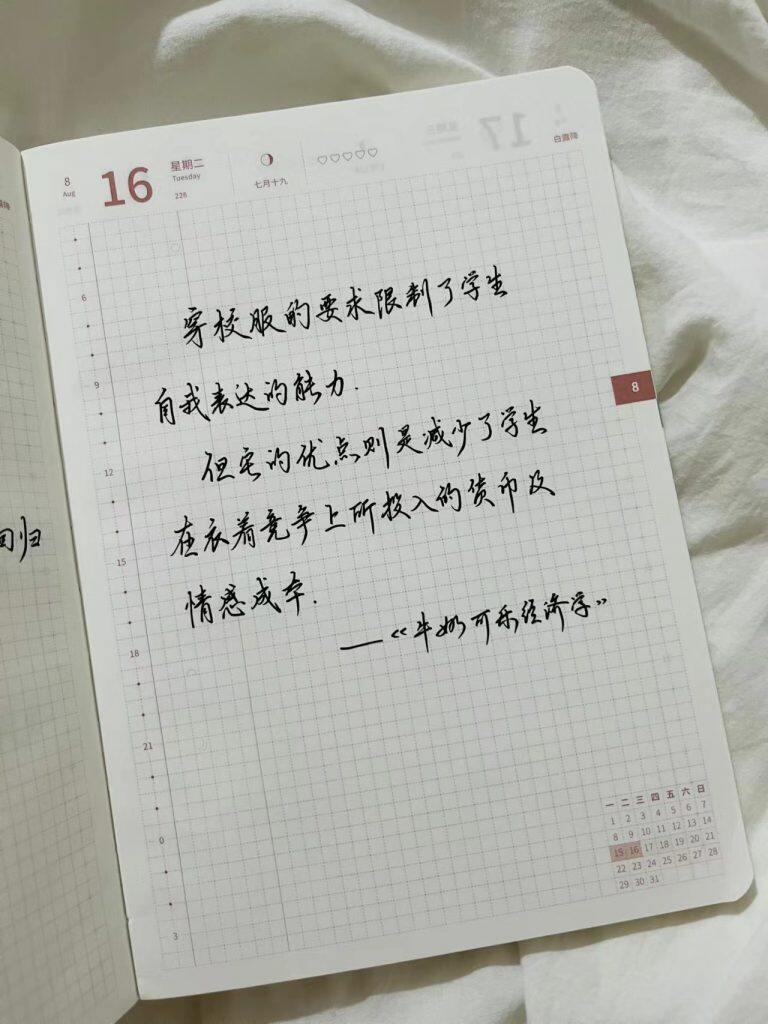 8
Aug
16
星期二
Tuesday
228
七月十九
17
白露降
6
9
12
15
18
21
0
3
8
穿校服的要求限制了学生
自我表达的能力.
但它的优点则是减少了学生
在衣着竞争上所投入的货币及
情感成本.
——《牛奶可乐经济学》
回归
一 二 三 四 五 六 日
1 2 3 4 5 6 7
8 9 10 11 12 13 14
15 16 17 18 19 20 21
22 23 24 25 26 27 28
29 30 31